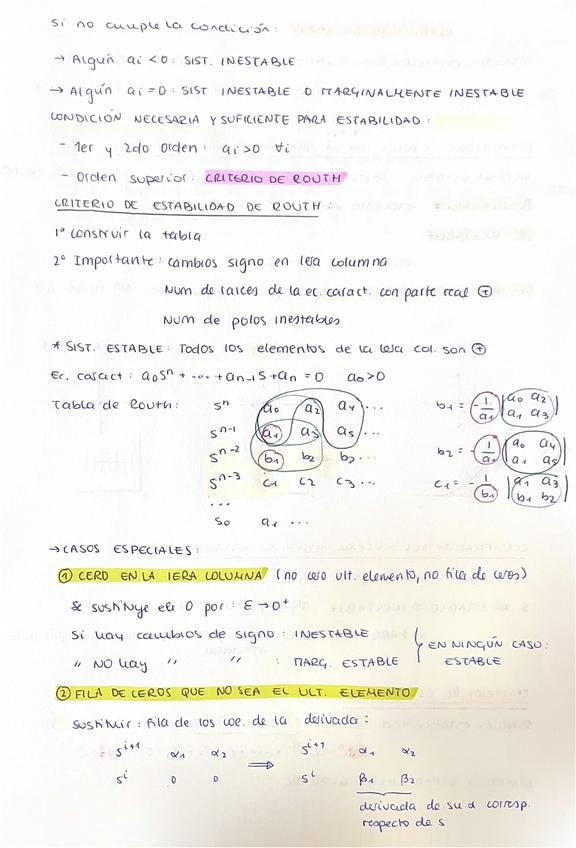 Si no cumple la condición:
→ Algún ai < 0: SIST. INESTABLE
→ Algún ai = 0: SIST INESTABLE O MARGINALMENTE INESTABLE
CONDICIÓN NECESARIA Y SUFICIENTE PARA ESTABILIDAD:
- 1er y 2do Orden: ai > 0 ∀i
- Orden superior: CRITERIO DE ROUTH
CRITERIO DE ESTABILIDAD DE ROUTH:
1º construir la tabla
2º Importante: cambios signo en 1era columna
Num de raíces de la ec. caract. con parte real ⊕
Num de polos inestables
* SIST. ESTABLE: Todos los elementos de la 1era col. son ⊕
Ec. caract: a₀sⁿ + .... + aₙ₋₁s + aₙ = 0 a₀>0
Tabla de Routh: sⁿ a₀ a₂ a₄ ... b₁ = -1/a₁ |a₀ a₂
sⁿ⁻¹ a₁ a₃ a₅ ... a₁ a₃|
sⁿ⁻² b₁ b₂ b₃ ... b₂ = -1/a₁ |a₀ a₄
a₁ a₅|
sⁿ⁻³ c₁ c₂ c₃ ... c₁ = -1/b₁ |a₁ a₃
b₁ b₂|
...
s₀ a₁ ...
→ CASOS ESPECIALES:
① CERO EN LA 1ERA COLUMNA (no cero ult. elemento, no fila de ceros)
Se sustituye el 0 por: ε → 0⁺
Si hay cambios de signo: INESTABLE
" NO hay " " : MARG. ESTABLE } EN NINGÚN CASO:
ESTABLE
② FILA DE CEROS QUE NO SEA EL ULT. ELEMENTO
Sustituir: fila de los coe. de la derivada:
sⁱ⁺¹ α₁ α₂ ⇒ sⁱ⁺¹ α₁ α₂
sⁱ 0 0 sⁱ β₁ β₂
derivada de su α corresp.
respecto de s